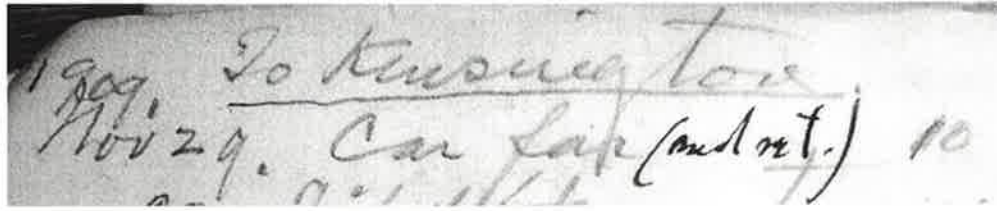 1909. To Kensington
Nov 29. Car fair (and ret.) 10